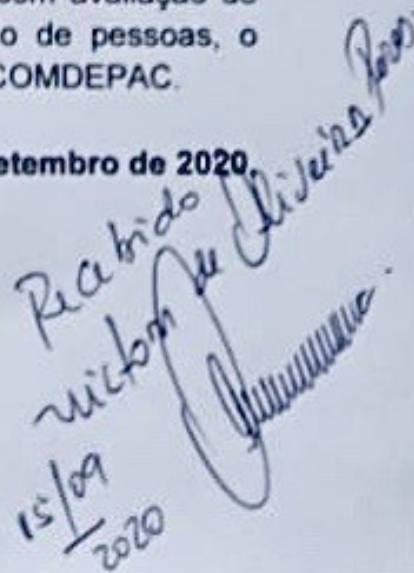 com avaliação de
o de pessoas, o
COMDEPAC.
etembro de 2020.
Recebido
Victor de Oliveira
15/09
2020